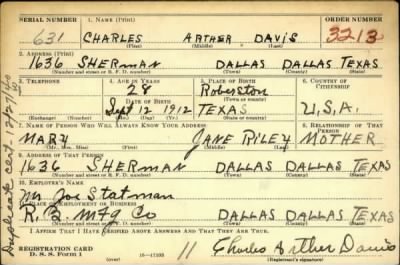 SERIAL NUMBER 1. NAME (Print) ORDER NUMBER
631 CHARLES ARTHER DAVIS 3213
(First) (Middle) (Last)
2. ADDRESS (Print)
1636 SHERMAN DALLAS DALLAS TEXAS
(Number and street or R. F. D. number) (Town) (County) (State)
3. TELEPHONE 4. AGE IN YEARS 5. PLACE OF BIRTH 6. COUNTRY OF CITIZENSHIP
28 Roberston
DATE OF BIRTH (Town or county)
Sept 12 1912 TEXAS U.S.A.
(Exchange) (Number) (Mo.) (Day) (Yr.) (State or country)
7. NAME OF PERSON WHO WILL ALWAYS KNOW YOUR ADDRESS 8. RELATIONSHIP OF THAT PERSON
MARY JANE RILEY MOTHER
(Mr., Mrs., Miss) (First) (Middle) (Last)
9. ADDRESS OF THAT PERSON
1636 SHERMAN DALLAS DALLAS TEXAS
(Number and street or R. F. D. number) (Town) (County) (State)
10. EMPLOYER'S NAME
M Joe Statman
11. PLACE OF EMPLOYMENT OR BUSINESS
R. B. Mfg Co DALLAS DALLAS TEXAS
(Number and street or R. F. D. number) (Town) (County) (State)
I AFFIRM THAT I HAVE VERIFIED ABOVE ANSWERS AND THAT THEY ARE TRUE.
REGISTRATION CARD
D. S. S. Form 1 (over) 16—17105 11 Charles Arther Davis
(Registrant's signature)
Duplicate cert.